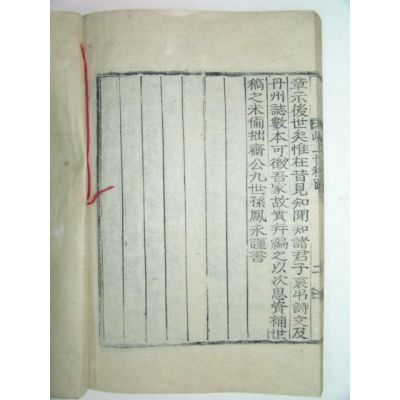 章示後世矣惟在昔見知聞知諸君子哀弔詩文及
丹州誌數本可徵吾家故實弁編之以次息資補世
稿之未備拙齋公九世孫鳳永謹書
世稿